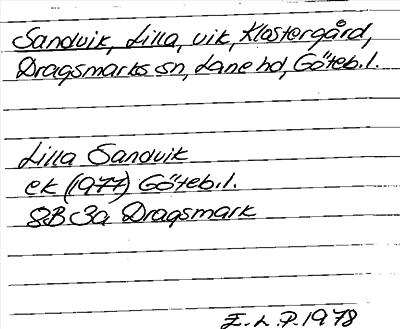 Sandvik, Lilla, vik, Klostergård,
Dragsmarks sn, Lane hd, Göteb. l.
Lilla Sandvik
ek (1977) Göteb. l.
8B 3a Dragsmark
E. L. P. 1978